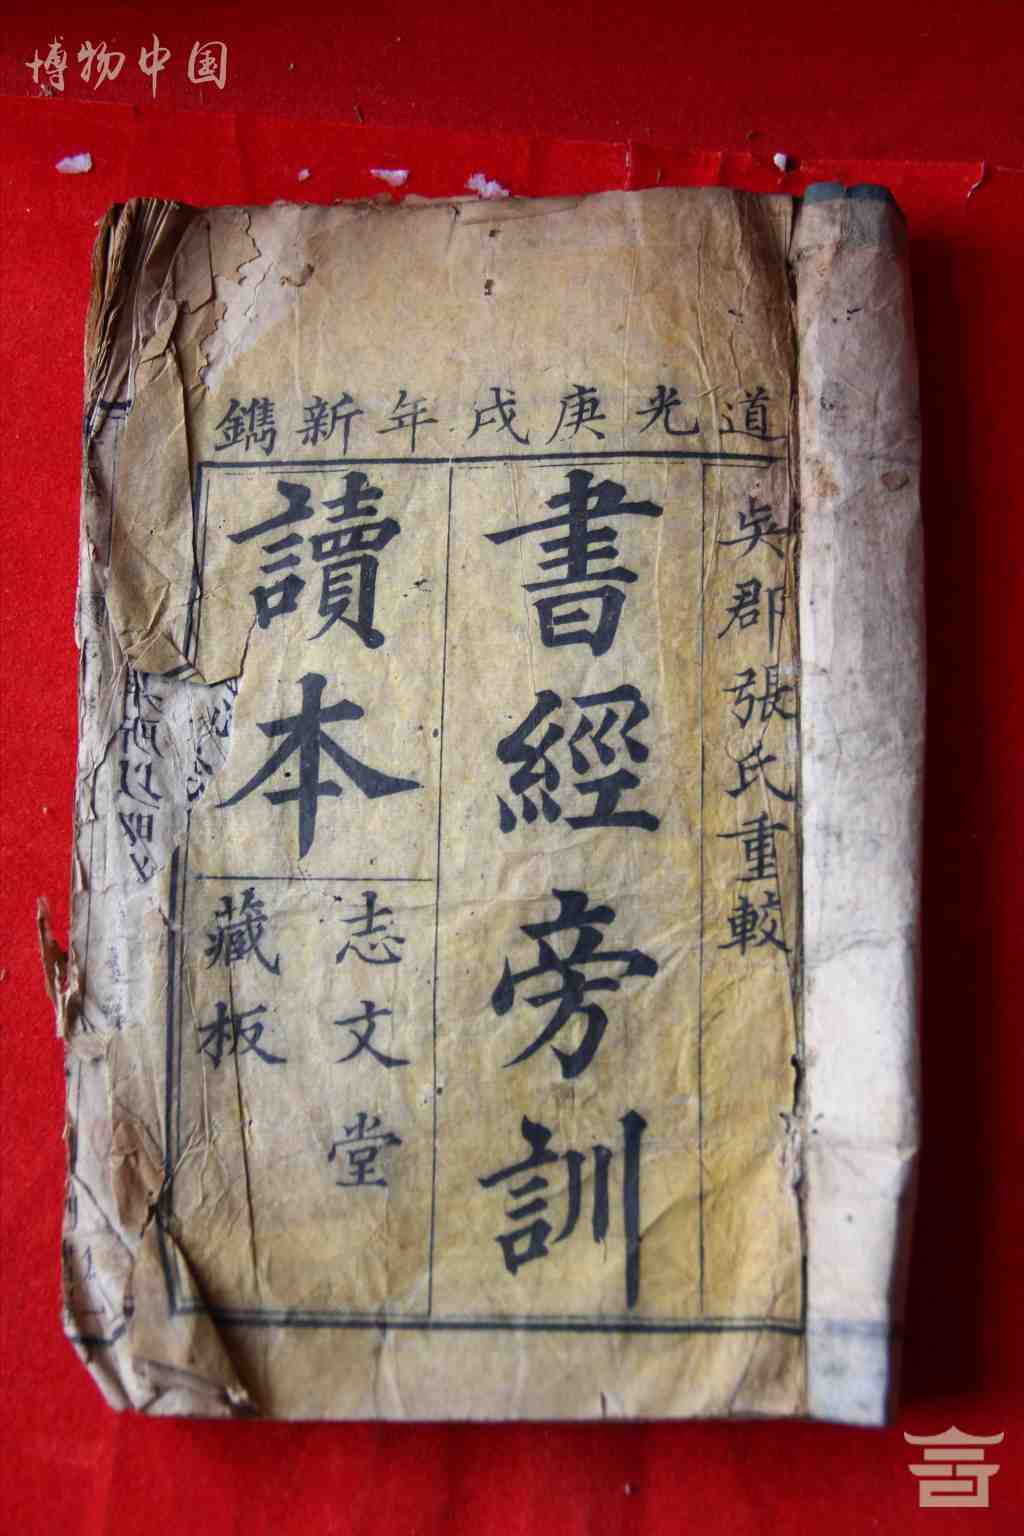 博物中国
道光庚戌年新鐫
吳郡張氏重較
書經旁訓
讀本
志文堂
藏板